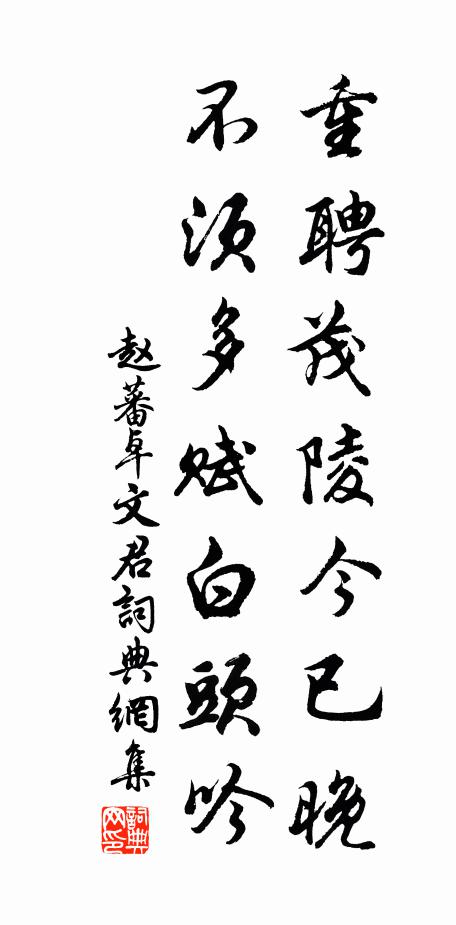 重聘茂陵今已晚
不須多賦白頭吟
赵蕃卓文君詞典網集
詞典
网印